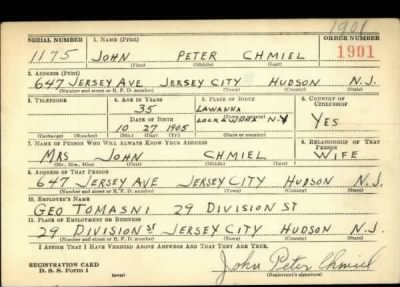 1901
SERIAL NUMBER 1. NAME (Print) ORDER NUMBER
1175 JOHN PETER CHMIEL 1901
(First) (Middle) (Last)
2. ADDRESS (Print)
647 JERSEY AVE JERSEY CITY HUDSON N.J.
(Number and street or R. F. D. number) (Town) (County) (State)
3. TELEPHONE 4. AGE IN YEARS 5. PLACE OF BIRTH 6. COUNTRY OF CITIZENSHIP
35 LAWANNA
DATE OF BIRTH N.Y YES
10 27 1905
(Exchange) (Number) (Mo.) (Day) (Yr.) (State or country)
7. NAME OF PERSON WHO WILL ALWAYS KNOW YOUR ADDRESS 8. RELATIONSHIP OF THAT PERSON
MRS JOHN CHMIEL WIFE
(Mr., Mrs., Miss) (First) (Middle) (Last)
9. ADDRESS OF THAT PERSON
647 JERSEY AVE JERSEY CITY HUDSON N.J.
(Number and street or R. F. D. number) (Town) (County) (State)
10. EMPLOYER'S NAME
GEO TOMASNI 29 DIVISION ST
11. PLACE OF EMPLOYMENT OR BUSINESS
29 DIVISION ST JERSEY CITY HUDSON N.J.
(Number and street or R. F. D. number) (Town) (County) (State)
I AFFIRM THAT I HAVE VERIFIED ABOVE ANSWERS AND THAT THEY ARE TRUE.
REGISTRATION CARD
D. S. S. Form 1 (over) John Peter Chmiel
(Registrant's signature)